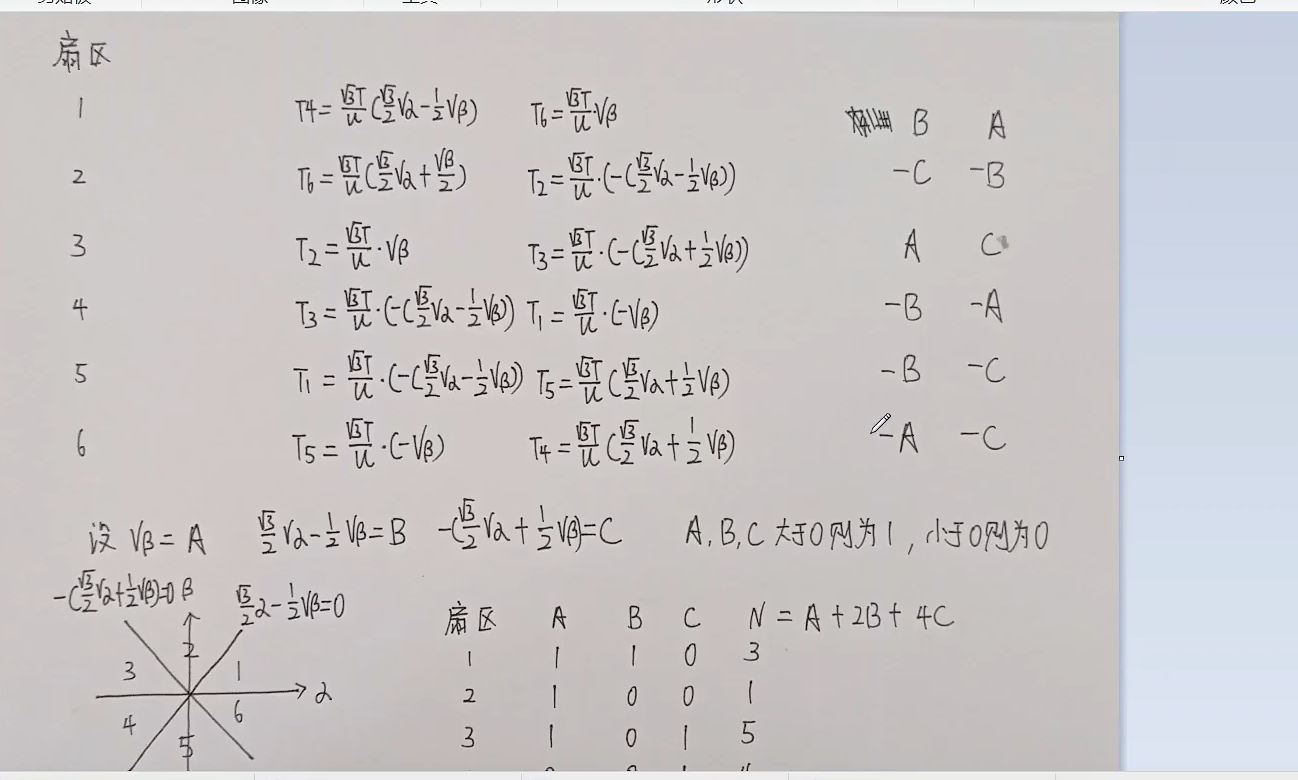 扇区
1 T4=√3T/U(√3/2Vα-1/2Vβ) T6=√3T/U·Vβ B A
2 T6=√3T/U(√3/2Vα+Vβ/2) T2=√3T/U·(-(√3/2Vα-1/2Vβ)) -C -B
3 T2=√3T/U·Vβ T3=√3T/U·(-(√3/2Vα+1/2Vβ)) A C
4 T3=√3T/U·(-(√3/2Vα-1/2Vβ)) T1=√3T/U·(-Vβ) -B -A
5 T1=√3T/U·(-(√3/2Vα-1/2Vβ)) T5=√3T/U(√3/2Vα+1/2Vβ) -B -C
6 T5=√3T/U·(-Vβ) T4=√3T/U(√3/2Vα+1/2Vβ) -A -C
设 Vβ=A √3/2Vα-1/2Vβ=B -(√3/2Vα+1/2Vβ)=C A,B,C大于0则为1,小于0则为0
-(√3/2Vα+1/2Vβ)=0 β √3/2α-1/2Vβ=0
3 2 1 α
4 5 6
扇区 A B C N=A+2B+4C
1 1 1 0 3
2 1 0 0 1
3 1 0 1 5